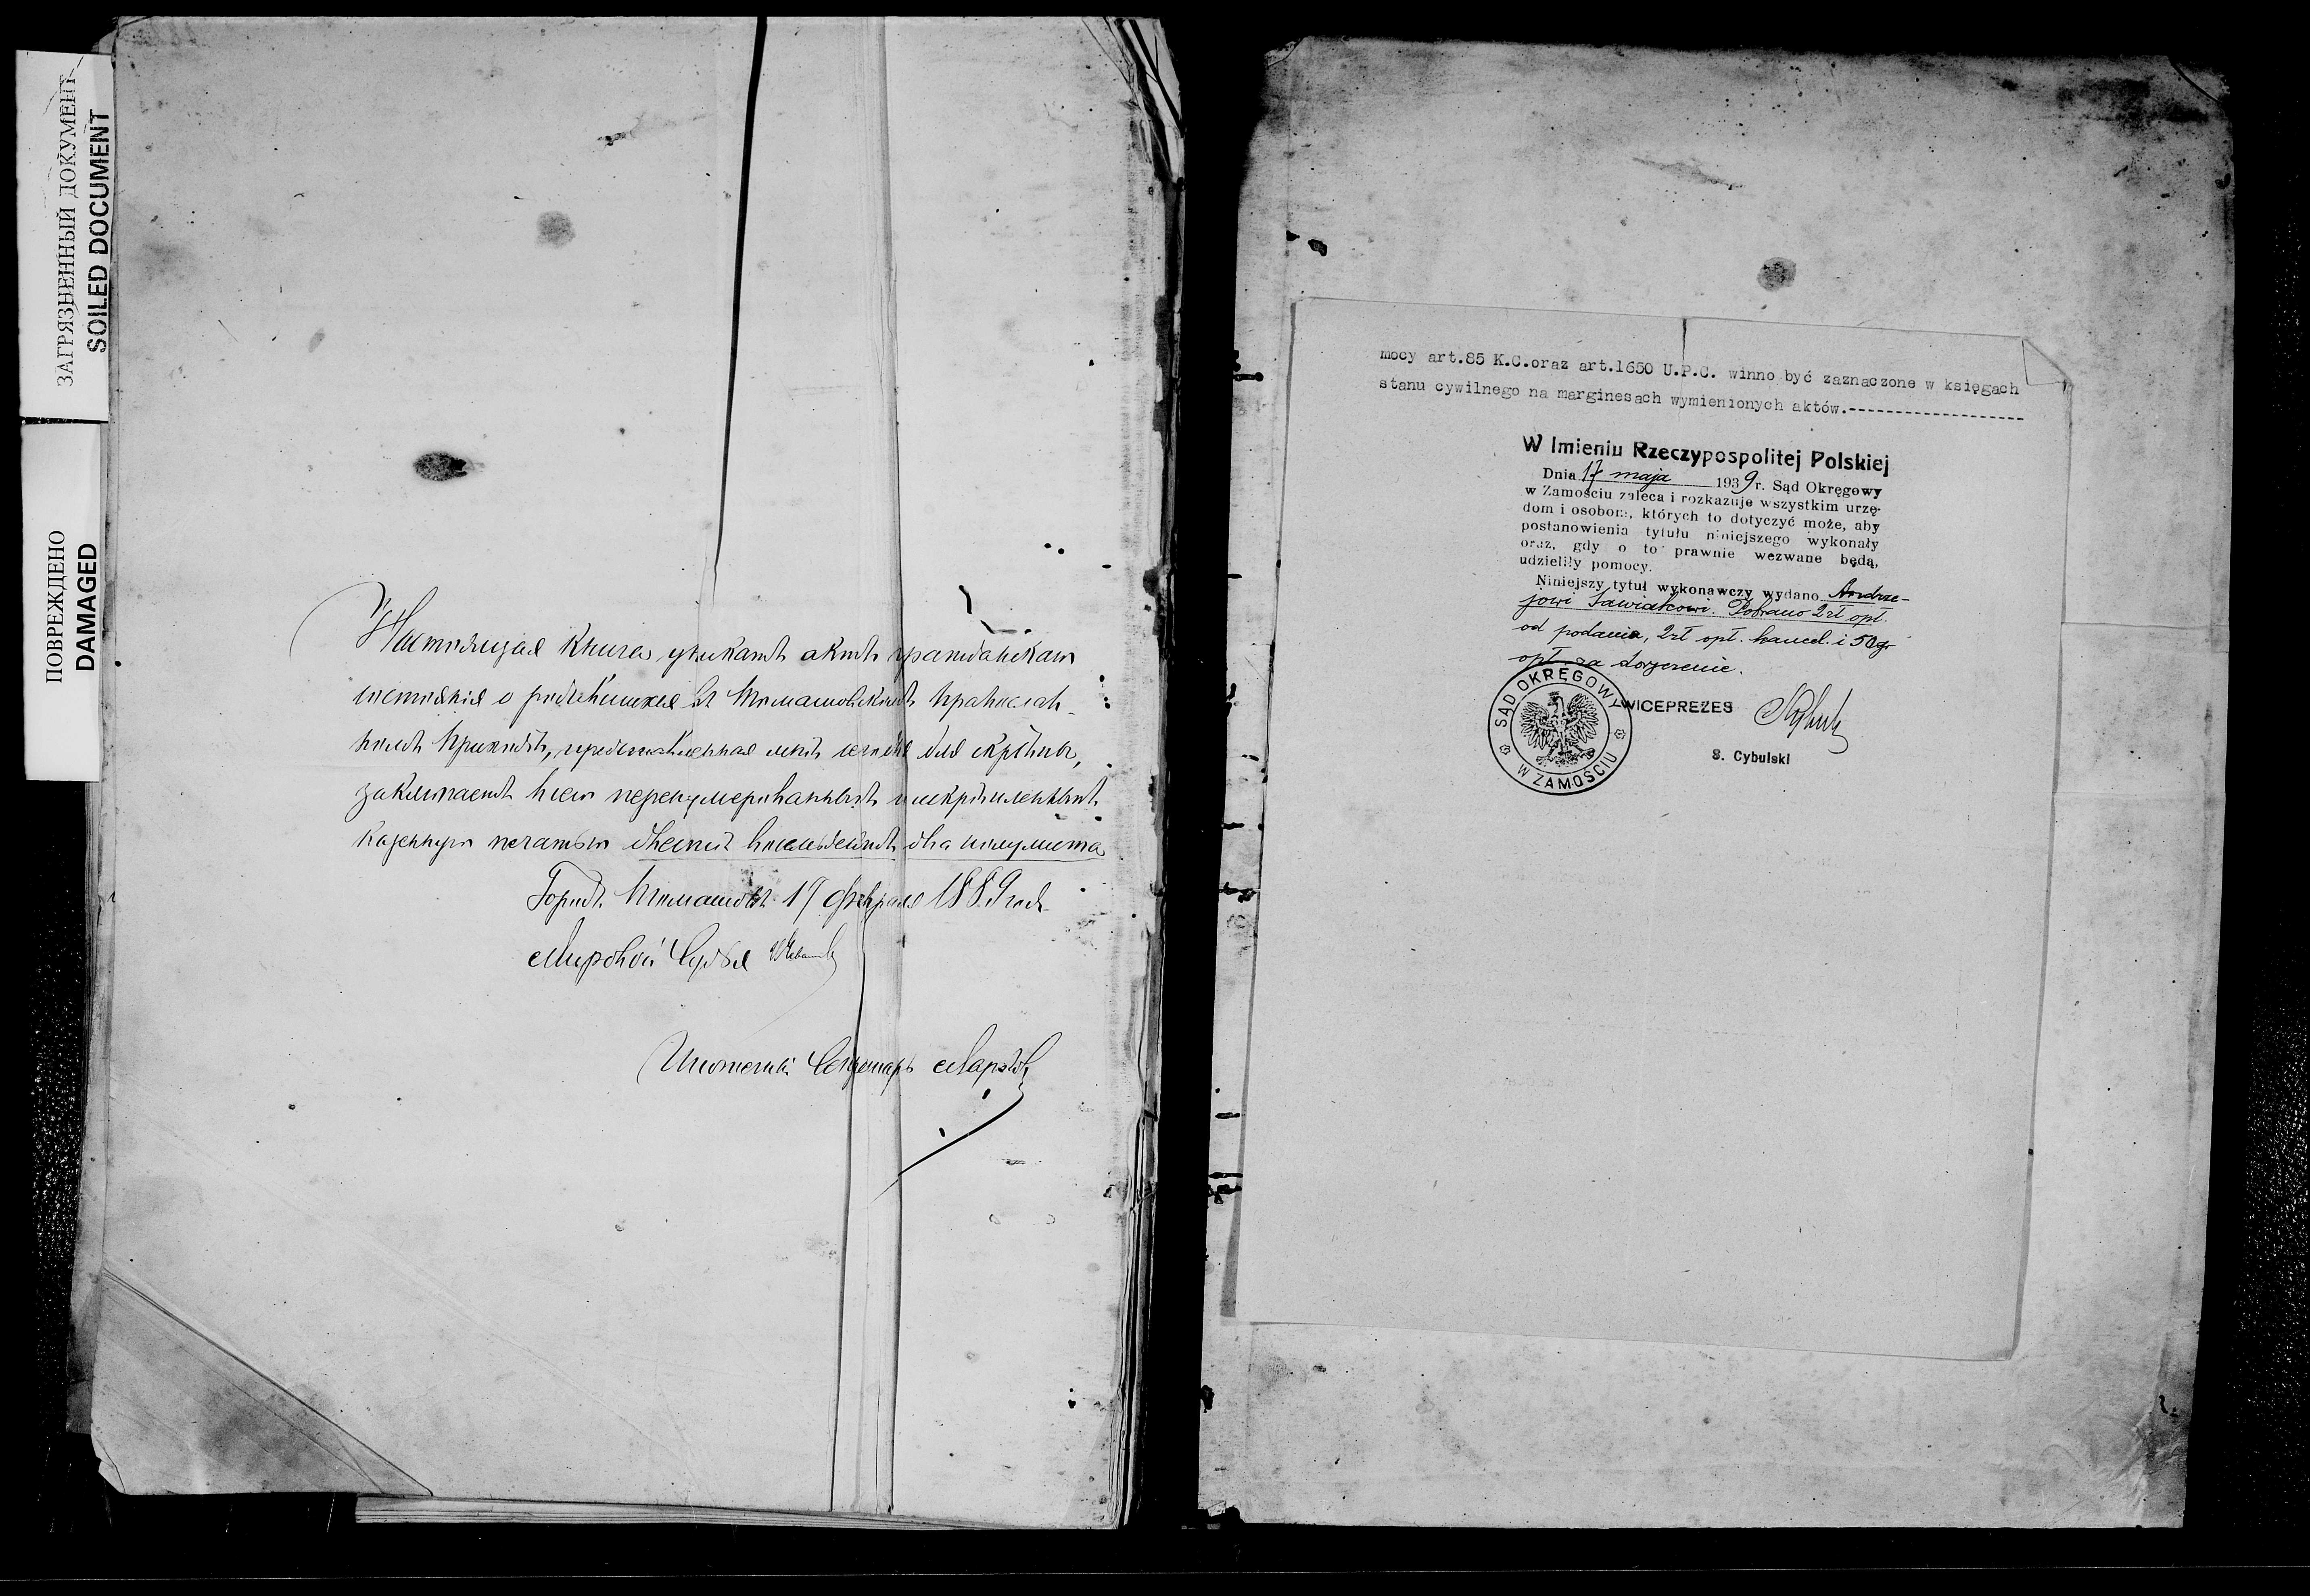 ЗАГРЯЗНЕННЫЙ ДОКУМЕНТ
SOILED DOCUMENT
ПОВРЕЖДЕНО
DAMAGED
Настоящая книга, уникатъ актъ гражданскаго
состоянія о родившихся въ Томашовскомъ Православ-
номъ приходѣ, представленная мнѣ для скрѣпы,
заключаетъ всего перенумерованныхъ и скрѣпленныхъ
казенную печатью двѣсти восемьдесятъ два полулиста
Городъ Томашовъ 17 февраля 1889 года
Мировой Судья
Секретарь
mocy art.85 K.C.oraz art.1650 U.P.C. winno być zaznaczone w księgach
stanu cywilnego na marginesach wymienionych aktów.-------------------
W Imieniu Rzeczypospolitej Polskiej
Dnia 17 maja 1939 r. Sąd Okręgowy
w Zamościu zaleca i rozkazuje wszystkim urzę-
dom i osobom, których to dotyczyć może, aby
postanowienia tytułu niniejszego wykonały
oraz, gdy o to prawnie wezwane będą,
udzieliły pomocy.
Niniejszy tytuł wykonawczy wydano Andrze-
jowi Sawiakowi. Pobrano 2 zł opł.
od podania, 2 zł opł. kancel. i 50 gr
opł. za doręczenie.
SĄD OKRĘGOWY
W ZAMOŚCIU
WICEPREZES
S. Cybulski